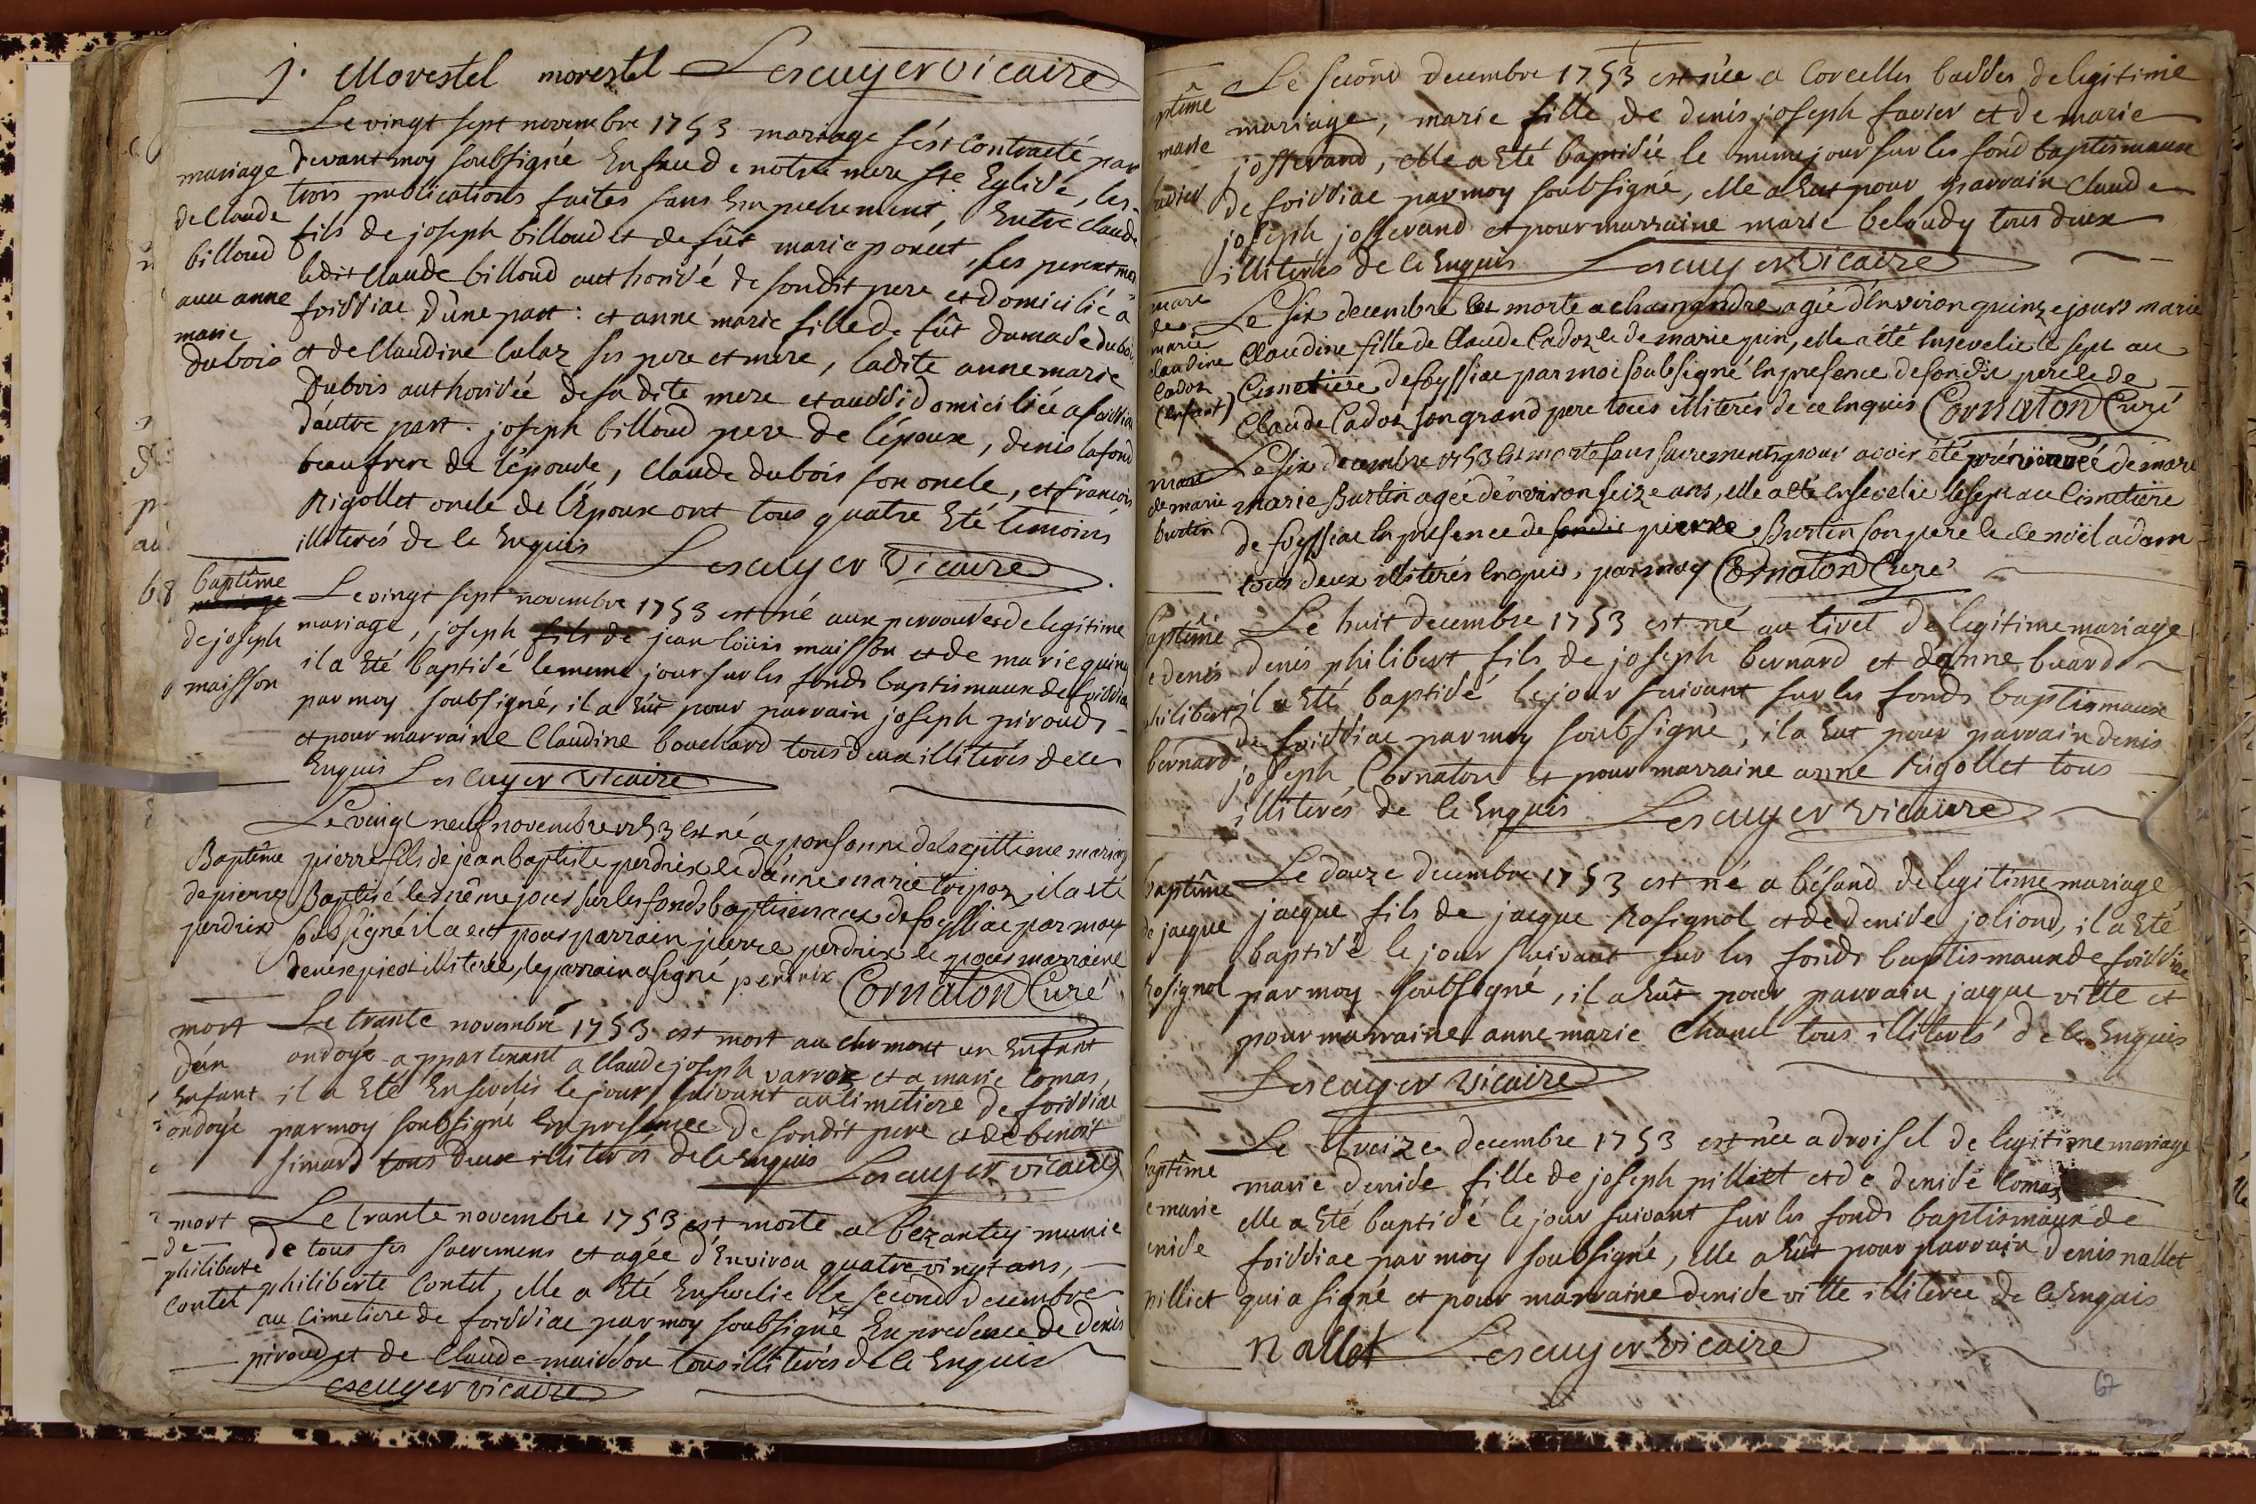 j. Morestel morestel Lescuyer vicaire
Le vingt sept novembre 1753 mariage s'est contracté par
mariage
de Claude
billoud
avec anne
marie
dubois
devant moy soubsigné En face de notre mere ste Eglise, les
trois publications faites sans Empechement, Entre claude
fils de joseph billoud et de fût marie ponéut, ses pere et mere
ledit Claude billoud authorisé de sondit pere et domicilié a
foissiac d'une part: et anne marie fille de fût damas dubois
et de Claudine Calaz ses pere et mere, ladite anne marie
Dubois authorisée de sadite mere et aussi domiciliée a foissia
d'autre part. joseph billoud pere de l'époux, denis lafond
beaufrere de l'épouse, Claude dubois son oncle, et francois
Rigollet oncle de l'Epoux ont tous quatre Eté temoins
illiterés de ce Enquis Lescuyer vicaire
68 baptême
de joseph
maisson
Le vingt sept novembre 1753 est né aux perrouses de legitime
mariage, joseph fils de jean loüis maisson et de marie guin
il a Eté baptisé le meme jour sur les fonds baptismaux de foissia
par moy soubsigné, il a Eut pour parrain joseph piroud
et pour marraine Claudine bouchard tous deux illiterés de ce
Enquis Lescuyer vicaire
Baptême
de pierre
perdrix
Le vingt neuf novembre 1753 est né a ponsonne de legittime mariag
pierre fils de jean baptiste perdrix et d'anne marie , il a été
Baptisé le même jour sur les fonds baptismaux de foyssiac par moy
soubsigné il a eut pour parrain pierre perdrix et pour marraine
denise illiterée, le parrain a signé perdrix Cornaton Curé
mort
d'un
Enfant
ondoyé
Le trante novembre 1753 est mort au Chamont un Enfant
ondoyé appartenant a Claude joseph varrax et a marie Comas,
il a Eté Ensevelis le jour suivant au cimetiere de foissiac
par moy soubsigné En presence de sondit pere et de benoit
simard tous deux illiterés de ce Enquis Lescuyer vicaire
mort
de
philiberte
Contet
Le trante novembre 1753 est morte a bezantey munie
de tous ses sacremens et agée d'Environ quatre vingt ans,
philiberte Contet, elle a Eté Ensevelie le second decembre
au cimetiere de foissiac par moy soubsigné En presence de denis
piroud et de Claude maisson tous illiterés de ce Enquis
Lescuyer vicaire
ptême
marie
favier
Le second decembre 1753 est née a Corcelles basses de legitime
mariage, marie fille de denis joseph favier et de marie
josserand, elle a Eté baptisée le meme jour sur les fond baptismaux
de foissiac par moy soubsigné, elle a Eut pour parrain Claude
joseph josserand et pour marraine marie beloudy tous deux
illiterés de ce Enquis Lescuyer vicaire
mort
de
marie
claudine
Cadoz
(Enfant)
Le six decembre est morte a chamandre agée d'Environ quinze jours marie
Claudine fille de Claude Cadoz et de marie guin, elle a été Ensevelie le sept au
Cimetiere de foyssiac par moi soubsigné En presence de sondit pere et de
Claude Cadoz son grand pere tous illiterés de ce Enquis Cornaton Curé
mort
de marie
burtin
Le six decembre 1753 est morte sans sacrements pour avoir été prévenuë de mort
marie Burtin agée d'environ seize ans, elle a été ensevelie le sept au Cimetiere
de foyssiac En presence de sondit pierre Burtin son pere et de noël adam
tous deux illiterés Enquis, par moy Cornaton Curé
baptême
e denis
philibert
bernard
Le huit decembre 1753 est né au tivet de legitime mariage
denis philibert fils de joseph bernard et d'anne buard
il a Eté baptisé le jour suivant sur les fonds baptismaux
de foissiac par moy soubsigné, il a Eut pour parrain denis
joseph Cornaton et pour marraine anne Rigollet tous
illiterés de ce Enquis Lescuyer vicaire
baptême
de jacque
Rosignol
Le douze decembre 1753 est né a bésand de legitime mariage
jacque fils de jacque Rosignol et de denise joliond, il a Eté
baptisé le jour suivant sur les fonds baptismaux de foissiac
par moy soubsigné, il a Eut pour parrain jacque ville et
pour marraine anne marie Chanel tous illiterés de ce Enquis
Lescuyer vicaire
baptême
e marie
enise
pilliet
Le treize decembre 1753 est née a droisel de legitime mariage
marie denise fille de joseph pilliet et de denise Comas
elle a Eté baptisé le jour suivant sur les fonds baptismaux de
foissiac par moy soubsigné, elle a Eut pour parrain denis nallet
qui a signé et pour marraine denise ville illiterée de ce Enquis
nallet Lescuyer vicaire
67